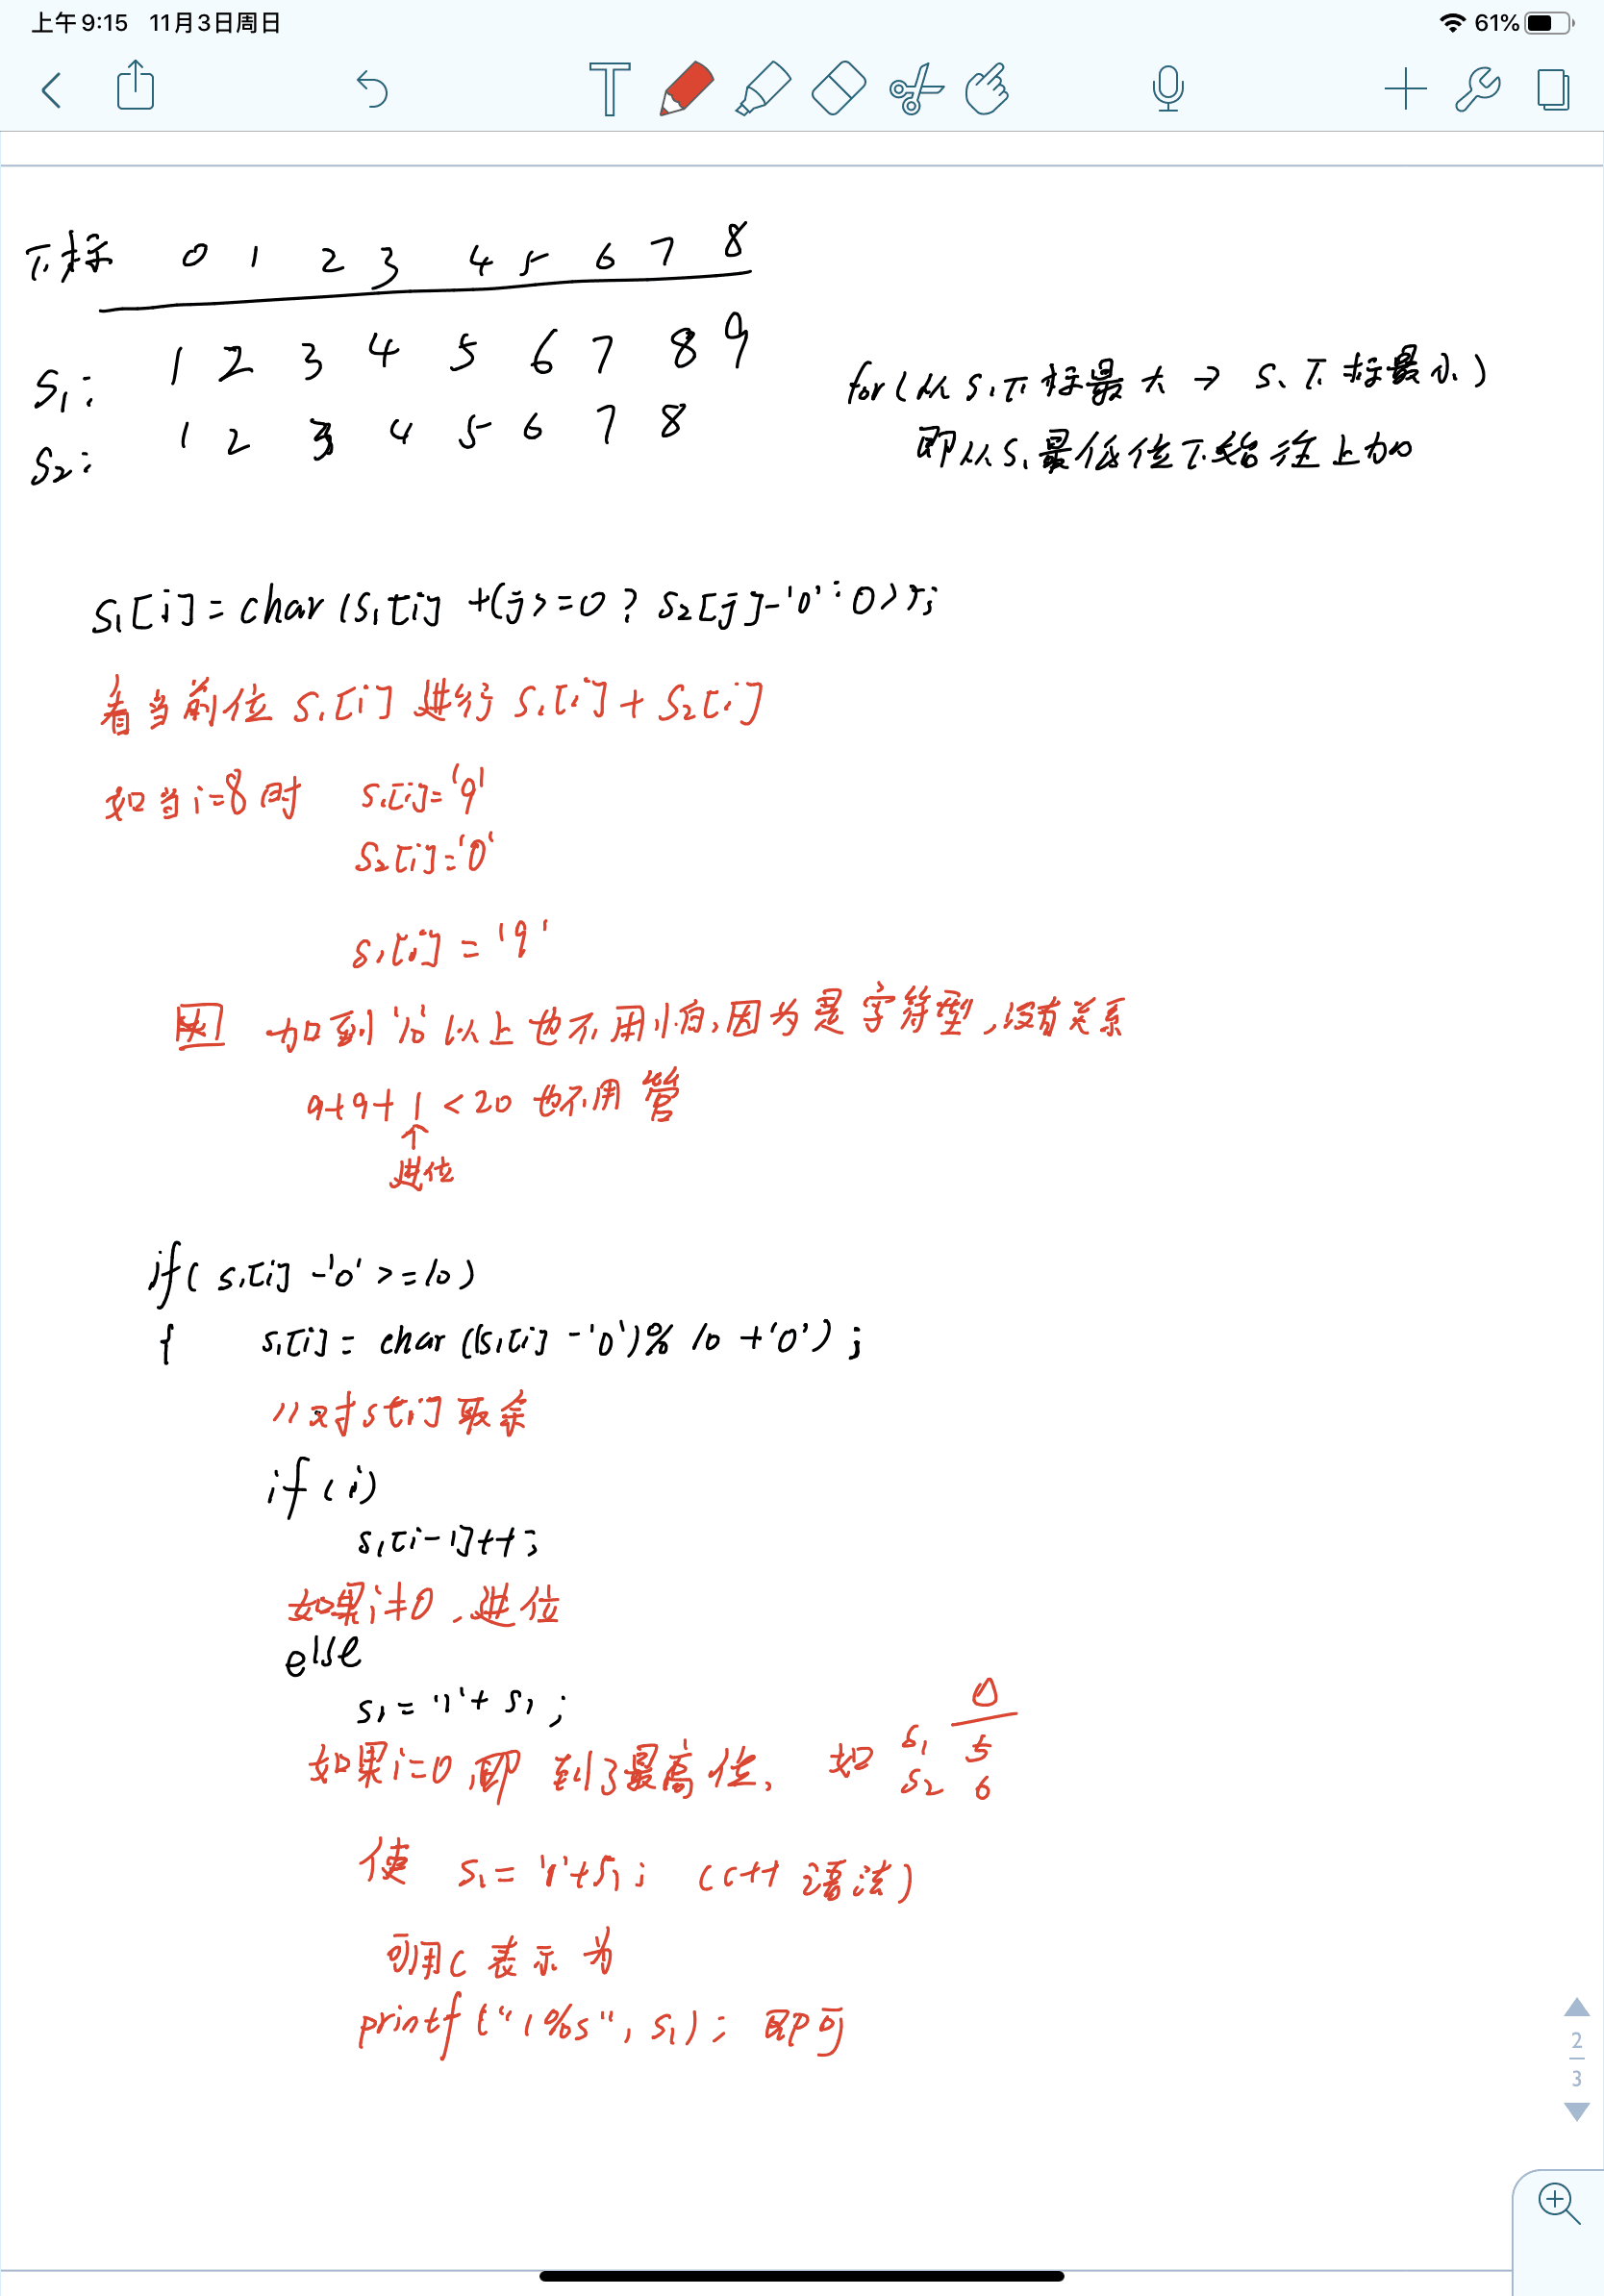 上午9:15 11月3日周日 61%
T
下标 0 1 2 3 4 5 6 7 8
S1: 1 2 3 4 5 6 7 8 9
S2: 1 2 3 4 5 6 7 8
for(从S1下标最大 → S1下标最小)
即从S1最低位开始往上加
S1[i]=char(S1[i]+(j>=0?S2[j]-'0':0));
看当前位 S1[i] 进行 S1[i]+S2[i]
如当i=8时 S1[i]='9'
S2[i]='0'
S1[i]='9'
加到'10'以上也不用怕,因为是字符型,没有关系
9+9+1<20 也不用管
↑
进位
if(S1[i]-'0'>=10)
{ S1[i]=char((S1[i]-'0')%10+'0');
//对S[i]取余
if(i)
S1[i-1]++;
如果i≠0,进位
else
S1='1'+S1;
如果i=0,即到了最高位, 如
0
S1 5
S2 6
使 S1='1'+S1; (C++语法)
可用C表示为
printf("1%s",S1); 即可
2
3